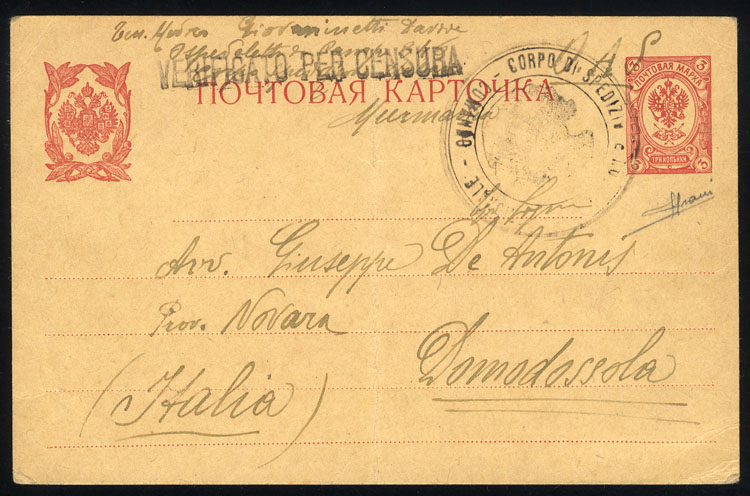 Ten. Medico Giovaninetti Davide
Ospedaletto da Campo
VERIFICATO PER CENSURA
ПОЧТОВАЯ КАРТОЧКА
Murmania
CORPO DI SPEDIZI
ПОЧТОВАЯ МАРКА
3
3
ТРИ КОПѢЙКИ
Avv. Giuseppe De Antonis
Prov. Novara
Domodossola
(Italia)